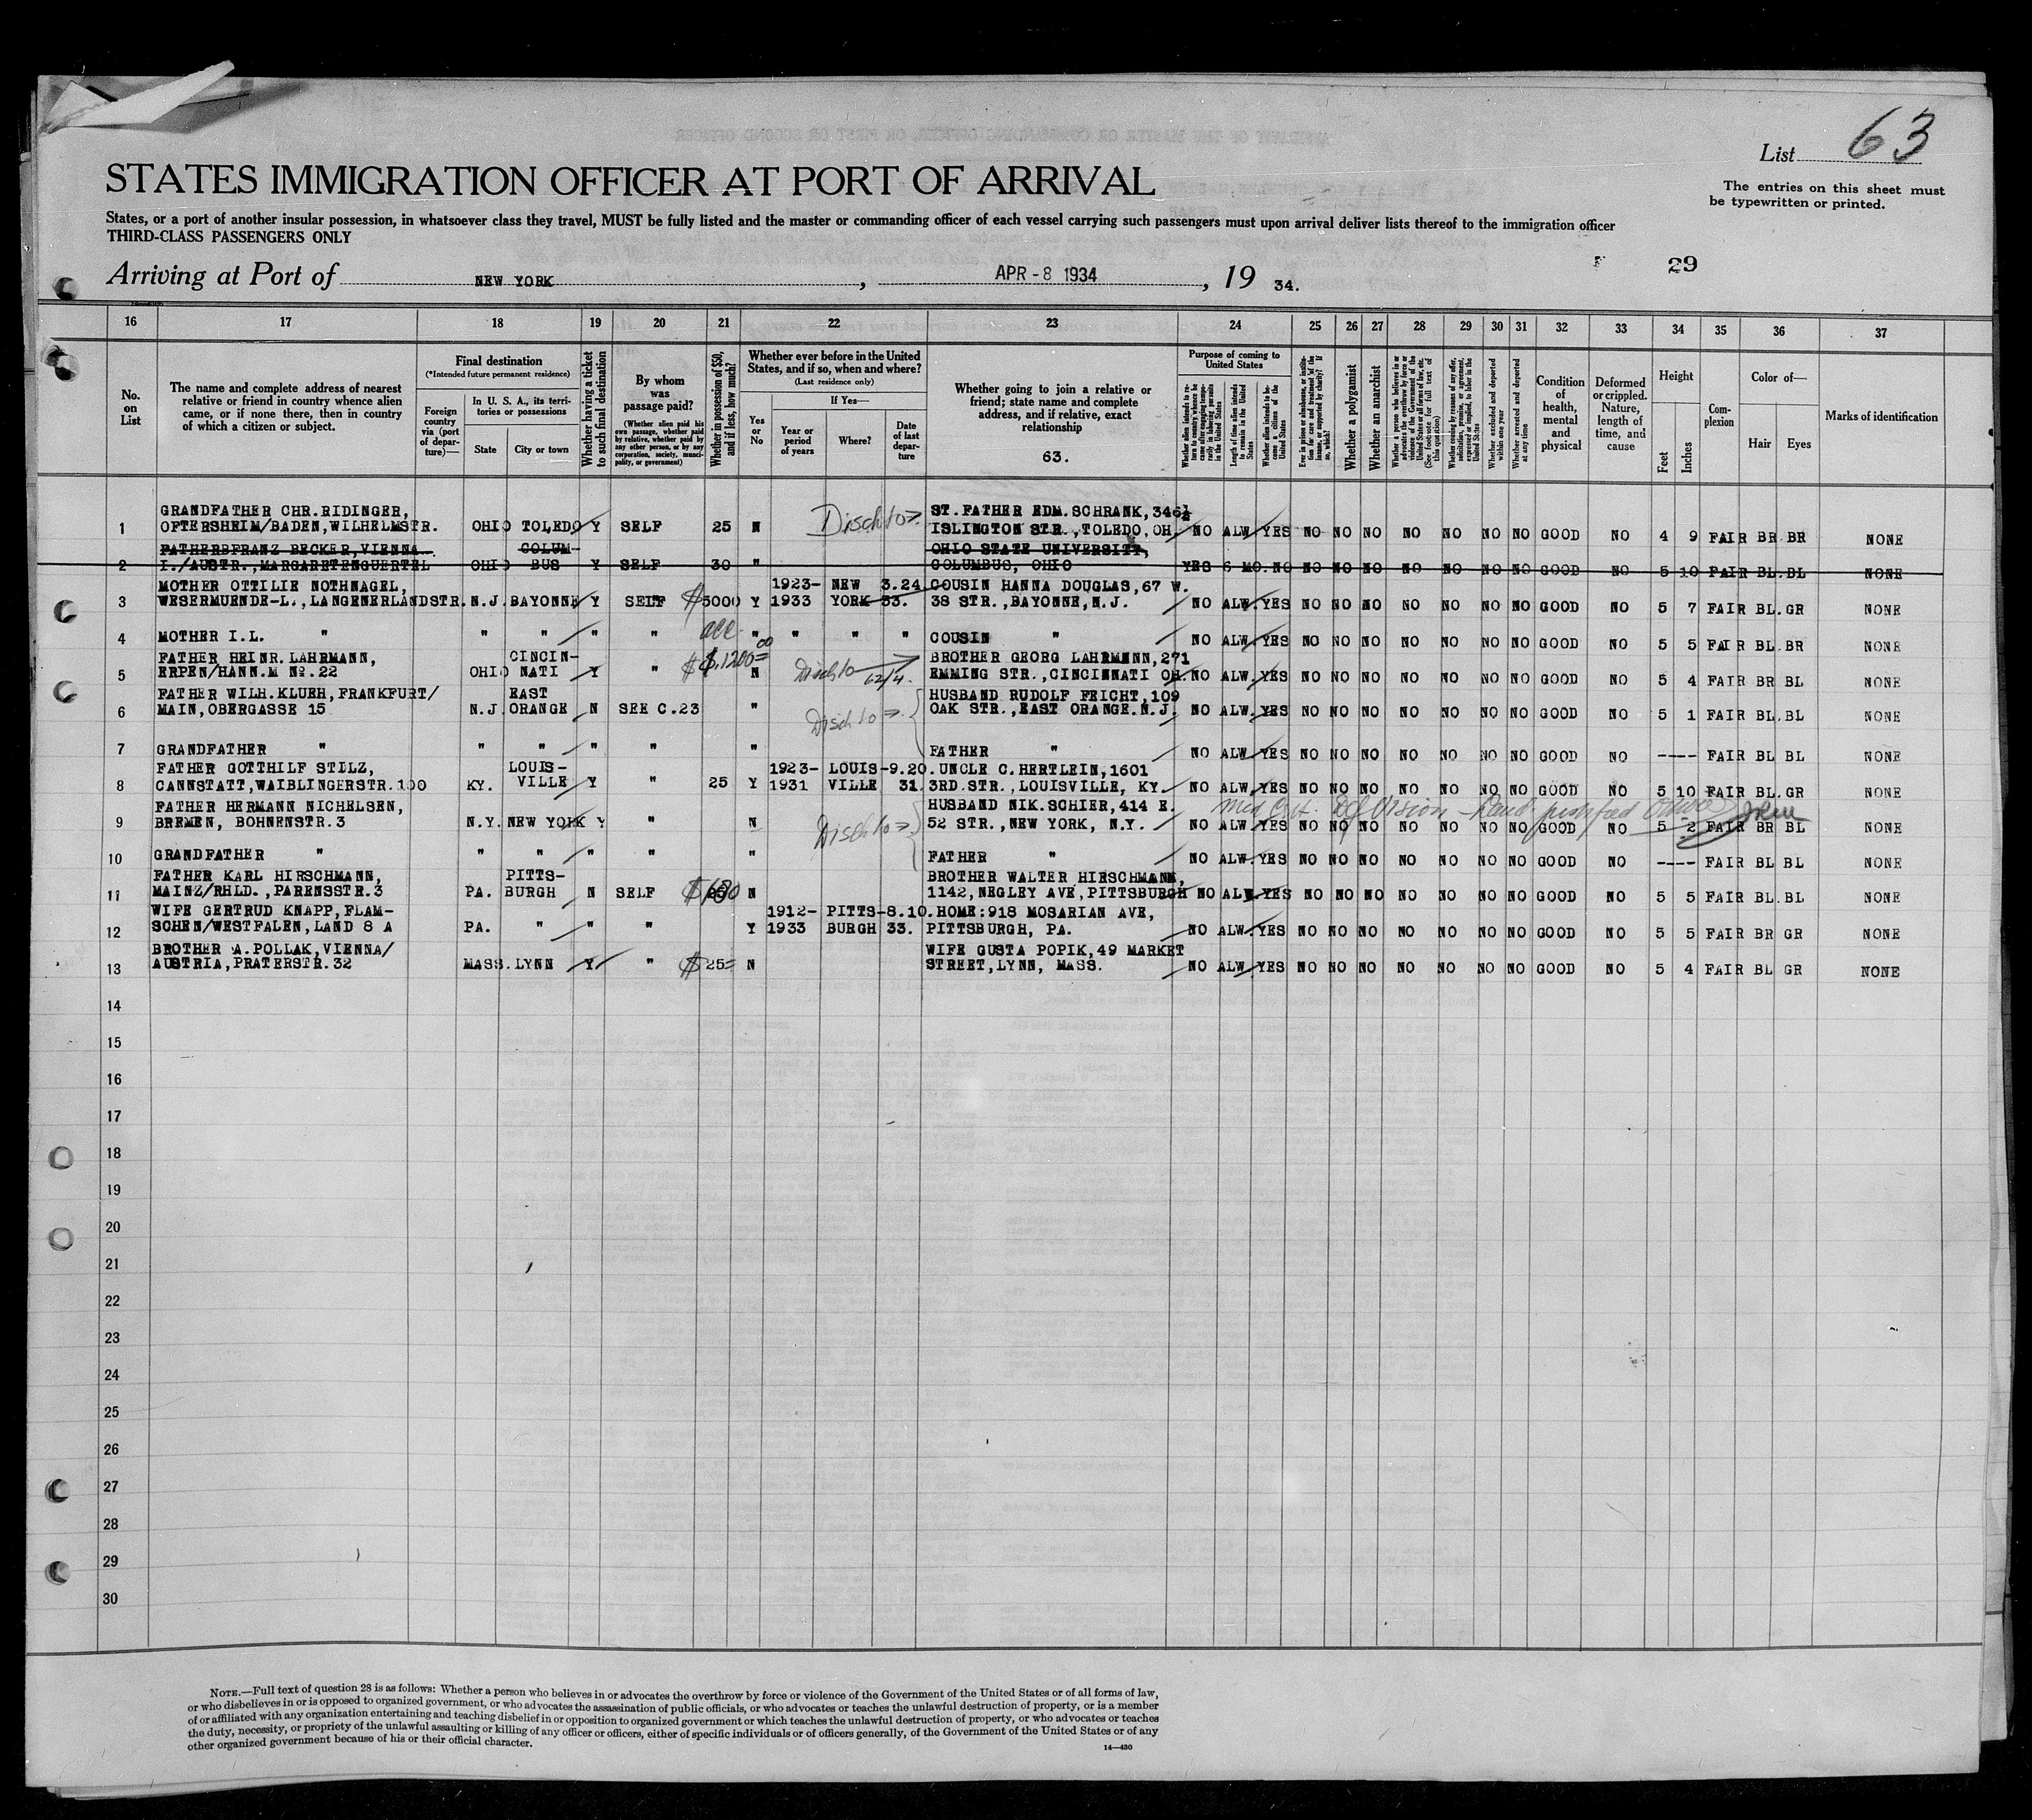 List 63
STATES IMMIGRATION OFFICER AT PORT OF ARRIVAL
The entries on this sheet must
be typewritten or printed.
States, or a port of another insular possession, in whatsoever class they travel, MUST be fully listed and the master or commanding officer of each vessel carrying such passengers must upon arrival deliver lists thereof to the immigration officer
THIRD-CLASS PASSENGERS ONLY
29
Arriving at Port of NEW YORK, APR - 8 1934, 19 34.
16 17 18 19 20 21 22 23 24 25 26 27 28 29 30 31 32 33 34 35 36 37
No. on List
The name and complete address of nearest
relative or friend in country whence alien
came, or if none there, then in country
of which a citizen or subject.
Final destination
(*Intended future permanent residence)
Foreign country via (port of depar-ture)—
In U. S. A., its terri-
tories or possessions
State
City or town
Whether having a ticket to such final destination
By whom was passage paid?
(Whether alien paid his own passage, whether paid by relative, whether paid by any other person, or by any corporation, society, munici-pality, or government)
Whether in possession of $50, and if less, how much?
Whether ever before in the United
States, and if so, when and where?
(Last residence only)
Yes or No
If Yes—
Year or period of years
Where?
Date of last depar-ture
Whether going to join a relative or
friend; state name and complete
address, and if relative, exact
relationship
63.
Purpose of coming to United States
Length of time alien intends to remain in the United States
Whether alien intends to be-come a citizen of the United States
Whether a polygamist
Whether an anarchist
Whether excluded and deported within one year
Whether arrested and deported at any time
Condition of health, mental and physical
Deformed or crippled. Nature, length of time, and cause
Height
Feet
Inches
Com-plexion
Color of—
Hair
Eyes
Marks of identification
GRANDFATHER CHR.RIDINGER, Disch to ST.FATHER EDM.SCHRANK,346½
1 OFTERSHEIM/BADEN,WILHELMSTR. OHIO TOLEDO Y SELF 25 N ISLINGTON STR.,TOLEDO,OH. NO ALW. YES NO NO NO NO NO NO NO GOOD NO 4 9 FAIR BR BR NONE
FATHERBFRANZ BECKER,VIENNA COLUM- OHIO STATE UNIVERSITY,
2 I./AUSTR.,MARGARETENGUERTEL OHIO BUS Y SELF 30 " COLUMBUS, OHIO YES 6 MO. NO NO NO NO NO NO NO NO GOOD NO 5 10 FAIR BL.BL NONE
MOTHER OTTILIE NOTHNAGEL, 1923- NEW 3.24. COUSIN HANNA DOUGLAS,67 W.
3 WESERMUENDE-L.,LANGENERLANDSTR. N.J. BAYONNE Y SELF $5000 Y 1933 YORK 33. 38 STR.,BAYONNE,N.J. NO ALW. YES NO NO NO NO NO NO NO GOOD NO 5 7 FAIR BL.GR NONE
4 MOTHER I.L. " " " " " acc. " " " " COUSIN " NO ALW. YES NO NO NO NO NO NO NO GOOD NO 5 5 FAIR BL.BR NONE
FATHER HEINR.LAHRMANN, CINCIN- $1200.00 BROTHER GEORG LAHRMANN,271
5 ERPEN/HANN.M No.22 OHIO NATI Y " N Disch to 62/4. EMMING STR.,CINCINNATI OH. NO ALW. YES NO NO NO NO NO NO NO GOOD NO 5 4 FAIR BR BL NONE
FATHER WILH.KLUEH,FRANKFURT/ EAST HUSBAND RUDOLF FEICHT,109
6 MAIN,OBERGASSE 15 N.J. ORANGE N SEE C.23 " Disch to OAK STR.,EAST ORANGE.N.J. NO ALW. YES NO NO NO NO NO NO NO GOOD NO 5 1 FAIR BL.BL NONE
7 GRANDFATHER " " " " " " FATHER " NO ALW. YES NO NO NO NO NO NO NO GOOD NO ---- FAIR BL BL NONE
FATHER GOTTHILF STILZ, LOUIS- 1923- LOUIS- 9.20. UNCLE C.HERTLEIN,1601
8 CANNSTATT,WAIBLINGERSTR.100 KY. VILLE Y " 25 Y 1931 VILLE 31. 3RD.STR.,LOUISVILLE, KY. NO ALW. YES NO NO NO NO NO NO NO GOOD NO 5 10 FAIR BL.GR NONE
FATHER HERMANN NICHELSEN, HUSBAND NIK.SCHIER,414 E. Med Cert.
9 BREMEN, BOHNENSTR.3 N.Y. NEW YORK Y " N Disch to 52 STR.,NEW YORK, N.Y. NO ALW. YES NO NO NO NO NO NO NO GOOD NO 5 2 FAIR BR BL NONE
10 GRANDFATHER " " " " " " FATHER " NO ALW. YES NO NO NO NO NO NO NO GOOD NO ---- FAIR BL BL NONE
FATHER KARL HIRSCHMANN, PITTS- BROTHER WALTER HIRSCHMANN,
11 MAINZ/RHLD.,PARENSSTR.3 PA. BURGH N SELF N 1142,NEGLEY AVE,PITTSBURGH NO ALW. YES NO NO NO NO NO NO NO GOOD NO 5 5 FAIR BL.BL NONE
WIFE GERTRUD KNAPP,FLAM- 1912- PITTS- 8.10. HOME:918 MOSARIAN AVE,
12 SCHEN/WESTFALEN,LAND 8 A PA. " " " Y 1933 BURGH 33. PITTSBURGH, PA. NO ALW. YES NO NO NO NO NO NO NO GOOD NO 5 5 FAIR BR GR NONE
BROTHER A.POLLAK,VIENNA/ WIFE GUSTA POPIK,49 MARKET
13 AUSTRIA,PRATERSTR.32 MASS. LYNN Y " $25= N STREET,LYNN, MASS. NO ALW. YES NO NO NO NO NO NO NO GOOD NO 5 4 FAIR BL GR NONE
14
15
16
17
18
19
20
21
22
23
24
25
26
27
28
29
30
NOTE.—Full text of question 28 is as follows: Whether a person who believes in or advocates the overthrow by force or violence of the Government of the United States or of all forms of law,
or who disbelieves in or is opposed to organized government, or who advocates the assassination of public officials, or who advocates or teaches the unlawful destruction of property, or is a member
of or affiliated with any organization entertaining and teaching disbelief in or opposition to organized government or which teaches the unlawful destruction of property, or who advocates or teaches
the duty, necessity, or propriety of the unlawful assaulting or killing of any officer or officers, either of specific individuals or of officers generally, of the Government of the United States or of any
other organized government because of his or their official character.
14—430